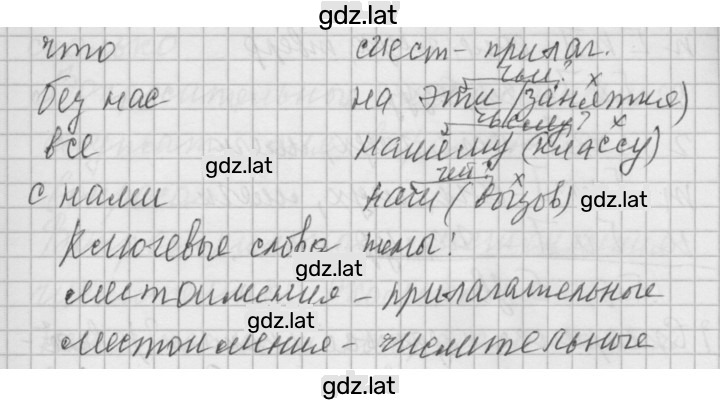 gdz.lat
что мест-прилаг.
чьи? х
без нас на эти (занятия)
чьему? х
все нашему (классу)
gdz.lat
чей? х
с нами наш (вызов) gdz.lat
Ключевые слова темы:
gdz.lat
местоимения - прилагательные
gdz.lat
местоимения - числительные
gdz.lat